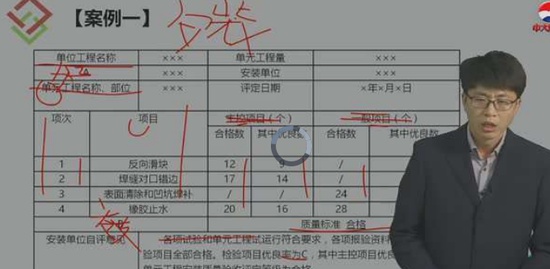 【案例一】
单位工程名称 ××× 单元工程量 ×××
××× 安装单位 ×××
单元工程名称、部位 ××× 评定日期 ×年×月×日
项次 项目 主控项目(个) 一般项目(个)
合格数 其中优良数 合格数 其中优良数
1 反向滑块 12 9 / /
2 焊缝对口错边 17 14 / /
3 表面清除和凹坑焊补 / / 24
4 橡胶止水 20 16 28
质量标准 合格
安装单位自评意见 各项试验和单元工程试运行符合要求,各项报验资料
检验项目全部合格。检验项目优良率为C,其中主控项目优